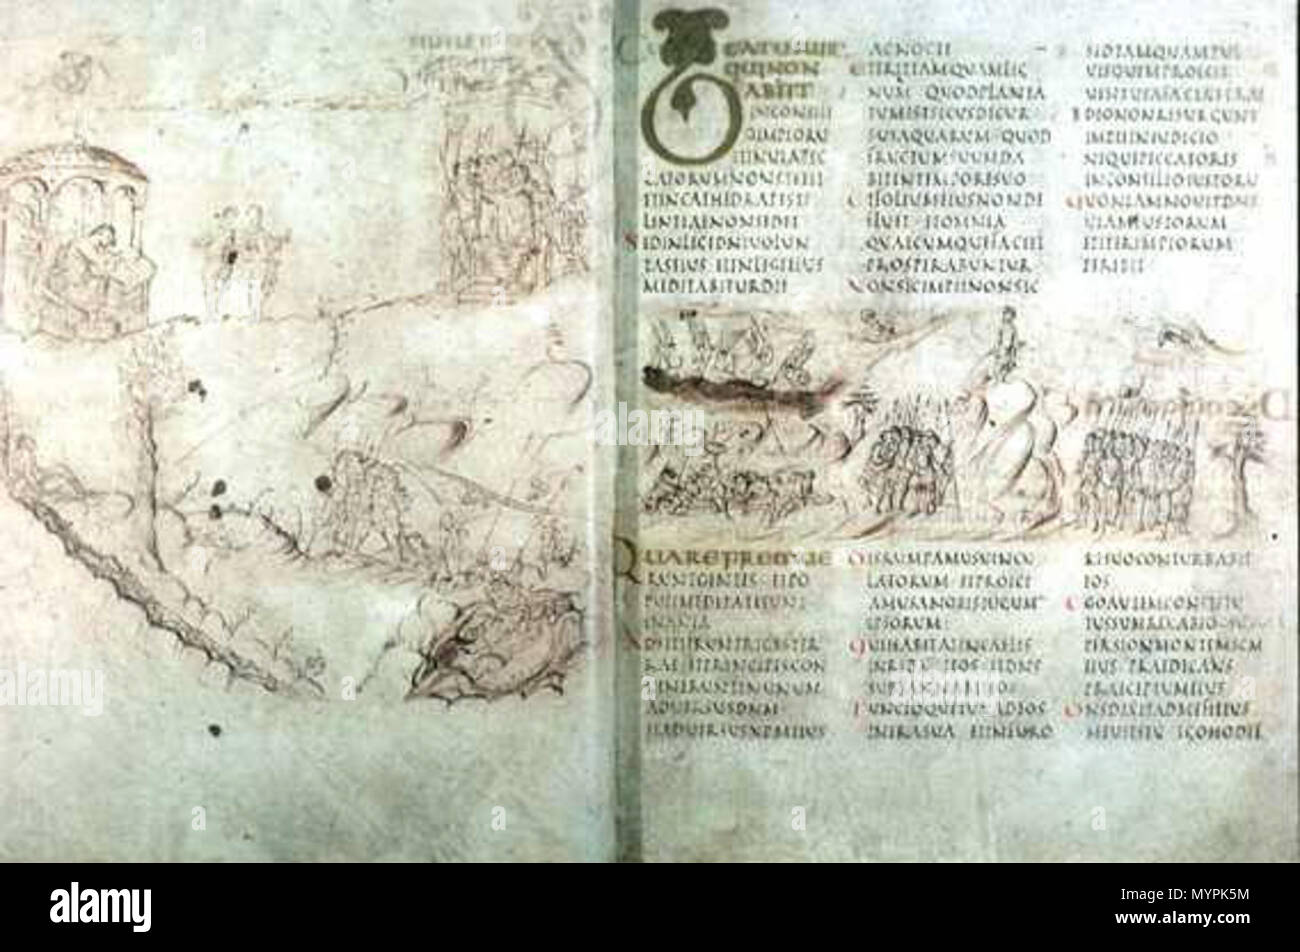 BEATUSUIR
QUINON
ABIIT
INCONSILI
OIMPIORU
ETINUIAPEC
CATORUMNONSTETIT
ETINCATHEDRAPESTI
LENTIAENONSEDIT
SEDINLEGEDNIUOLUN
TASEIUS ETINLEGEEIUS
MEDITABITURDIE
ACNOCTE
ETERITTAMQUAMLIG
NUM QUODPLANTA
TUMESTSECUSDECUR
SUSAQUARUM QUOD
FRUCTUMSUUMDA
BITINTEMPORESUO
ETFOLIUMEIUSNONDE
FLUET ETOMNIA
QUAECUMQUEFACIET
PROSPERABUNTUR
NONSICIMPIINONSIC
UENTUSAFACIETERRAE
IDEONONRESURGUNT
IMPIIINIUDICIO
NEQUEPECCATORES
INCONSILIOIUSTORU
QUONIAMNOUITDNS
UIAMIUSTORUM
ETITERIMPIORUM
PERIBIT
QUAREFREMUE
RUNTGENTES ETPO
PULIMEDITATISUNT
INANIA
ADSTITERUNTREGESTER
RAE ETPRINCIPESCON
UENERUNTINUNUM
ADUERSUSDNM
ETADUERSUSXPMEIUS
DISRUMPAMUSUINCU
LAEORUM ETPROICI
AMUSANOBISIUGUM
IPSORUM
QUIHABITATINCAELIS
INRIDEBITEOS ETDNS
SUBSANNABITEOS
TUNCLOQUETUR ADEOS
INIRASUA ETINFURO
RESUOCONTURBABIT
EOS
EGOAUTEMCONSTITU
TUSSUMREXABEO
PERSIONMONTEMSCM
EIUS PRAEDICANS
PRAECEPTUMEIUS
DNSDIXITADMEFILIUS
MEUSESTU EGOHODIE
alamy
a
alamy
Image ID: MYPK5M
www.alamy.com